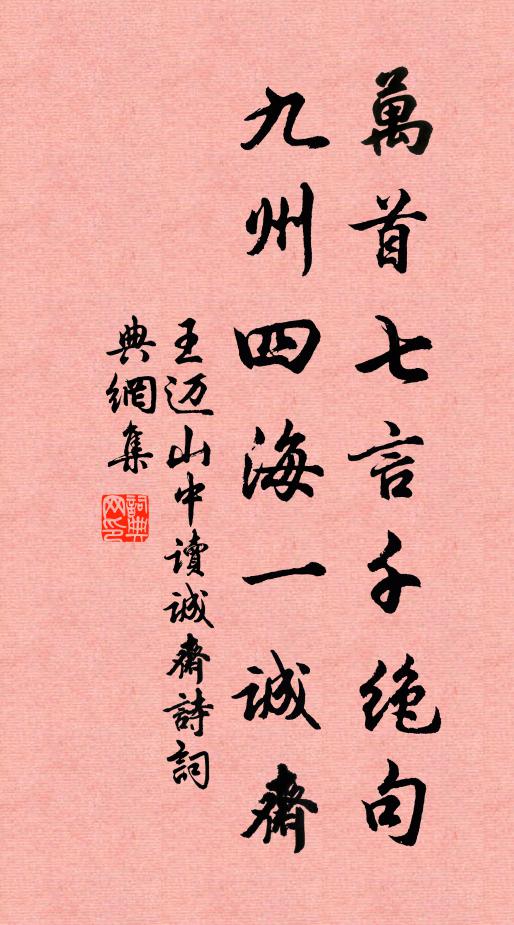 萬首七言千絶句
九州四海一誠齋
王迈山中讀誠齋詩詞
典網集
詞典网印